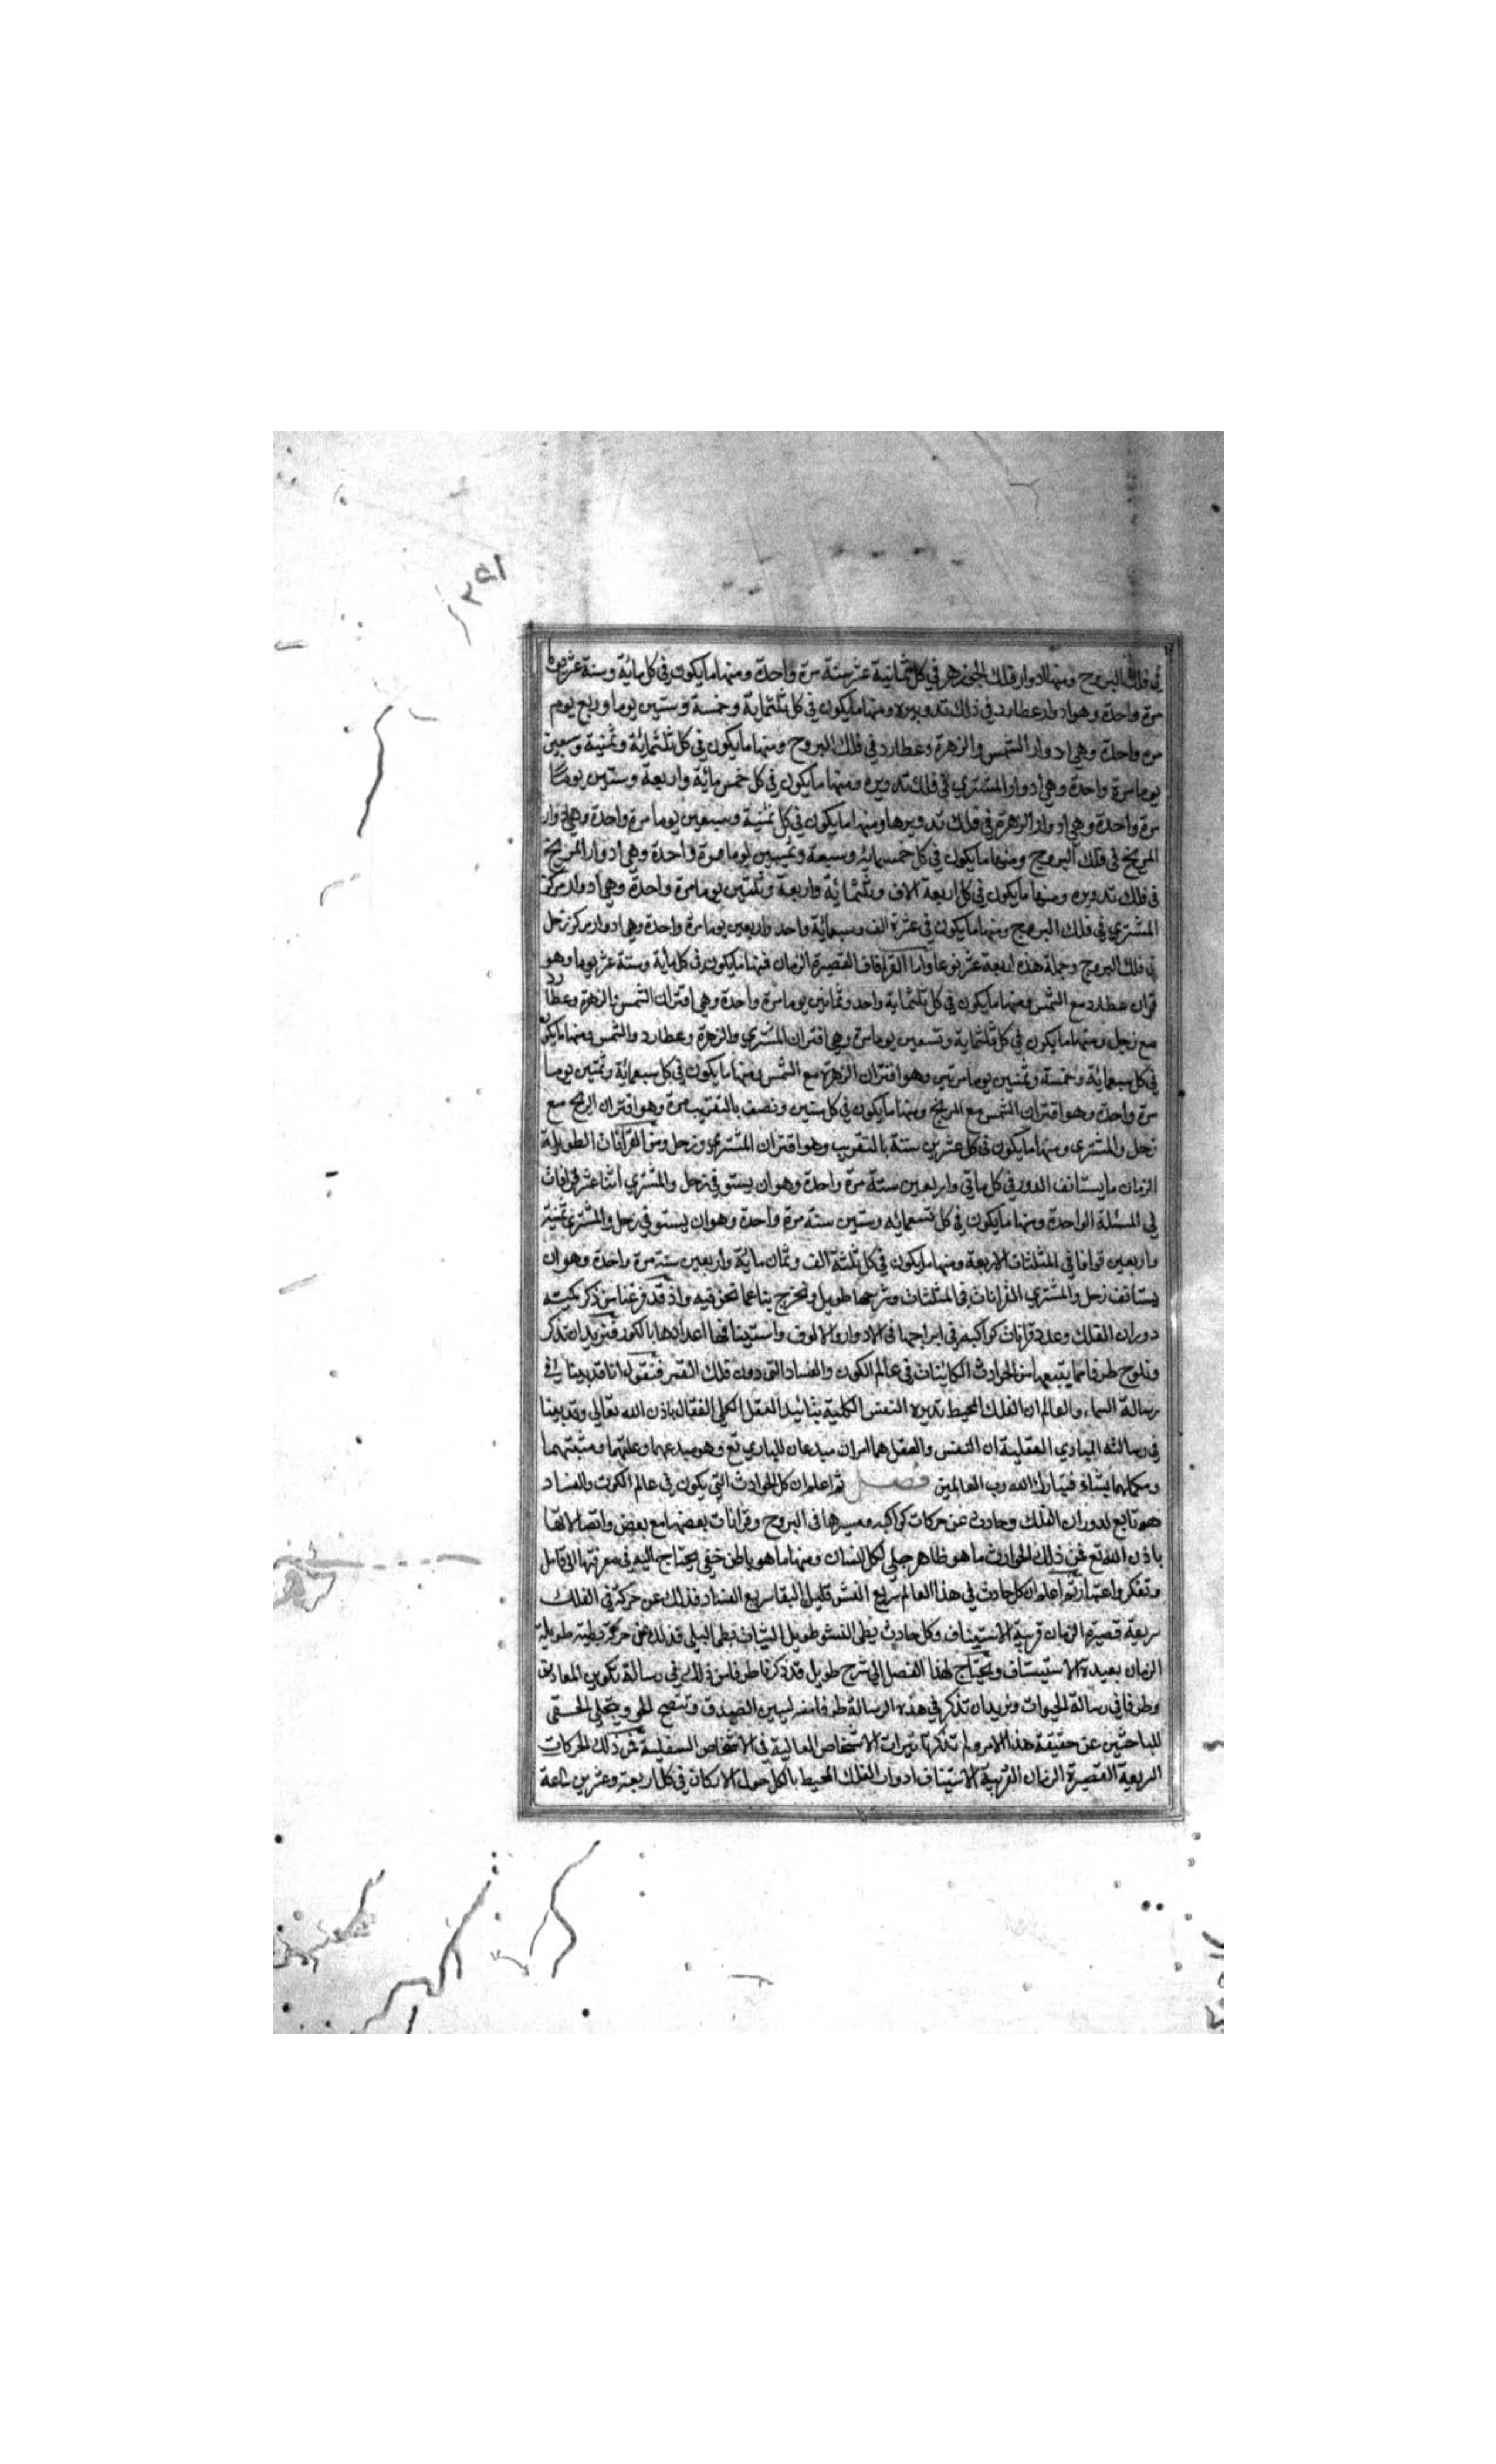 ٢٩١
في فلك البروج ومنها ادوار فلك الجوزهر في كل ثمانية عشر سنة مرة واحدة ومنها ما يكون في كل مائة وستة عشر يوما
مرة واحدة وهو ادوار عطارد في فلك تدويره ومنها ما يكون في كل ثلثماية وخمسة وستين يوما وربع يوم
مره واحدة وهي ادوار الشمس والزهرة وعطارد في فلك البروج ومنها ما يكون في كل ثلثمائة وثمنية وسبعين
يوما مرة واحدة وهي ادوار المشتري في فلك تدويره ومنها ما يكون في كل خمس مائة واربعة وستين يوما
مرة واحدة وهي ادوار الزهرة في فلك تدويرها ومنها ما يكون في كل ثمنية وسبعين يوما مرة واحدة وهي ادوار
المريخ في فلك البروج ومنها ما يكون في كل خمسمائة وسبعة وثمنين يوما مرة واحدة وهي ادوار المريخ
في فلك تدويره ومنها ما يكون في كل اربعة الاف وثلثمائة واربعة وثلثين يوما مرة واحدة وهي ادوار مركز
المشتري في فلك البروج ومنها ما يكون في عشرة الف وسبعمائة واحد واربعين يوما مرة واحدة وهي ادوار مركز زحل
في فلك البروج وجملة هذه اربعة عشر نوعا واما القرانات القصيرة الزمان فمنها ما يكون في كل مأية وستة عشر يوما وهو
قران عطارد مع الشمس ومنها ما يكون في كل ثلثماية واحد وثمانين يوما مرة واحدة وهي اقتران الشمس والزهرة وعطارد
مع زحل ومنها ما يكون في كل ثلثماية وتسعين يوما مرة وهي اقتران المشتري والزهرة وعطارد والشمس ومنها ما يكون
في كل سبعمائة وخمسة وثمنين يوما مرتين وهو اقتران الزهرة مع الشمس ومنها ما يكون في كل سبعمائة وثمنين يوما
مرة واحدة وهو اقتران الشمس مع المريخ ومنها ما يكون في كل سنتين ونصف بالتقريب مرة وهو اقتران المريخ مع
زحل والمشتري ومنها ما يكون في كل عشرين سنة بالتقريب وهو اقتران المشتري وزحل ومن القرانات الطويلة
الزمان ما يستانف الدور في كل ماتي واربعين سنة مرة واحدة وهو ان يستوفي زحل والمشتري اثنا عشر قرانات
في المثلثة الواحدة ومنها ما يكون في كل تسعمائه وستين سنة مرة واحدة وهو ان يستوفي زحل والمشتري ثمنية
واربعين قرانا في المثلثات الاربعة ومنها ما يكون في كل ثلثة الف وثمان ماية واربعين سنة مرة واحدة وهو ان
يستانف زحل والمشتري القرانات في المثلثات وشرحها طويل ونخرج بنا عما نحن فيه واذ قد فرغنا من ذكر كمية
دوران الفلك وعدد قرانات كواكبه في ابراجها في الادوار والالوف واستينافها اعدادها بالكور فنريد ان نذكر
ونلوح طرفا مما يتبعها من الحوادث الكاينات في عالم الكون والفساد التي دون فلك القمر فنقول انا قد بينا في
رسالة السماء والعالم ان الفلك المحيط تديره النفس الكلية بتائيد العقل الكلي الفعال باذن الله تعالي وقد بينا
في رسالته المبادي العقلية ان النفس والعقل هما امران مبدعان للباري تع وهو مبدعهما وعلتهما ومثبتهما
ومكملهما يشاء فتبارك الله رب العالمين فصل ثم اعلم ان كل الحوادث التي يكون في عالم الكون والفساد
هو تابع لدوران الفلك وحادث عن حركات كواكبه ومسيرها في البروج وقرانات بعضها مع بعض واتصالاتها
باذن الله تع فمن ذلك الحوادث ما هو ظاهر جلي لكل انسان ومنها ما هو باطن خفي يحتاج اليه في معرفتها الى تامل
وتفكر واعتبار ثم اعلم ان كل حادث في هذا العالم سريع النشو قليل البقا سريع الفساد فذلك عن حركة في الفلك
سريعة قصيرة الزمان قريبة الاستيناف وكل حادث بطي النشو طويل الثبات بطي البلى فذلك عن حركة بطيئة طويلة
الزمان بعيدة الاستيناف ويحتاج لهذا الفصل الى شرح طويل قد ذكرنا طرفا من ذلك في رسالة تكوين المعادن
وطرفا في رسالة الحيوات ونريد ان نذكر في هذه الرسالة طرفا منه ليبين الصدق ويتضح الحق ويتجلى الحق
للباحثين عن حقيقة هذا الامر ولم نذكرها تيرات الاشخاص العالية في الاشخاص السفلية فمن ذلك الحركات
السريعة القصيرة الزمان القريبة الاستيناف ادوار الفلك المحيط بالكل حول الاركان في كل اربعة وعشرين ساعة